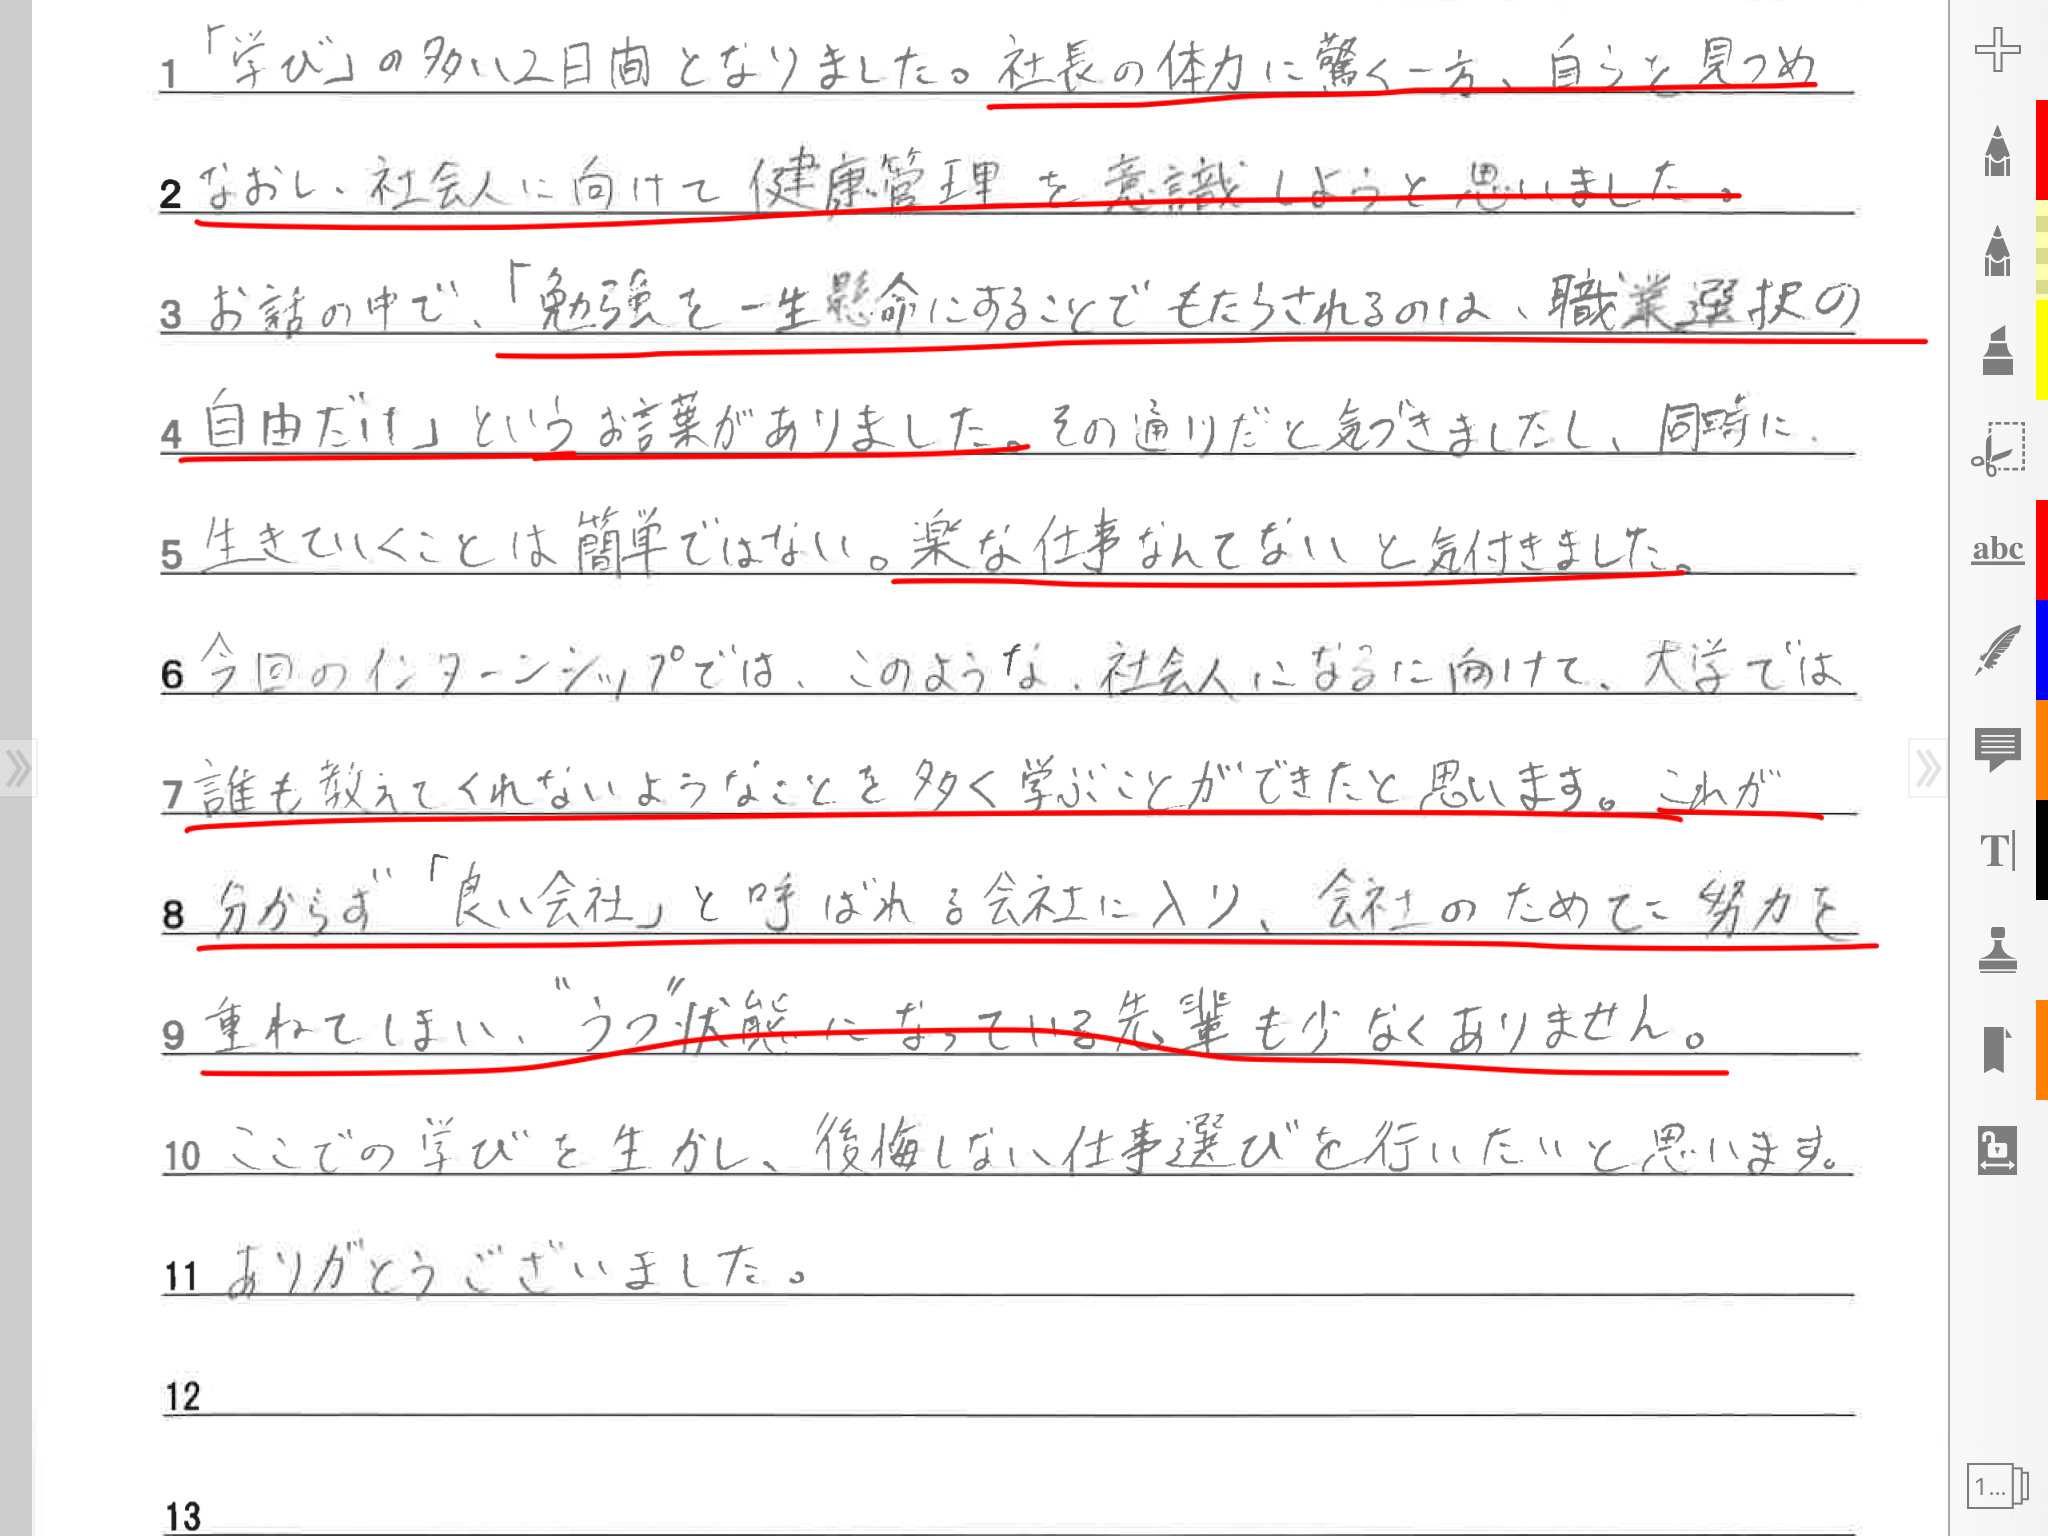 1 「学び」の多い2日間となりました。社長の体力に驚く一方、自らを見つめ
2 なおし、社会人に向けて健康管理を意識しようと思いました。
3 お話の中で、「勉強を一生懸命にすることでもたらされるのは、職業選択の
4 自由だけ」というお言葉がありました。その通りだと気づきましたし、同時に、
5 生きていくことは簡単ではない。楽な仕事なんてないと気付きました。
6 今回のインターンシップでは、このような、社会人になるに向けて、大学では
7 誰も教えてくれないようなことを多く学ぶことができたと思います。これが
8 分からず「良い会社」と呼ばれる会社に入り、会社のためてに努力を
9 重ねてしまい、"うつ"状態になっている先輩も少なくありません。
10 ここでの学びを生かし、後悔しない仕事選びを行いたいと思います。
11 ありがとうございました。
12
13
abc
T
1...